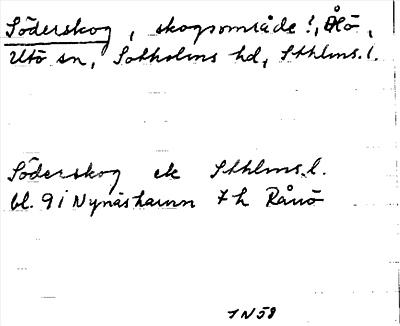 Söderskog, skogsområde!, Ålö,
Utö sn, Sotholms hd, Sthlms.l.
Söderskog ek Sthlms.l.
bl. 9 i Nynäshamn 7h Rånö
JN58